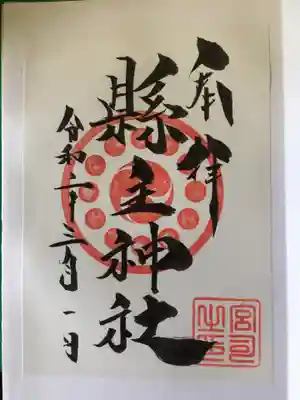 奉拝
縣主神社
令和二年三月一日
宮司
之印